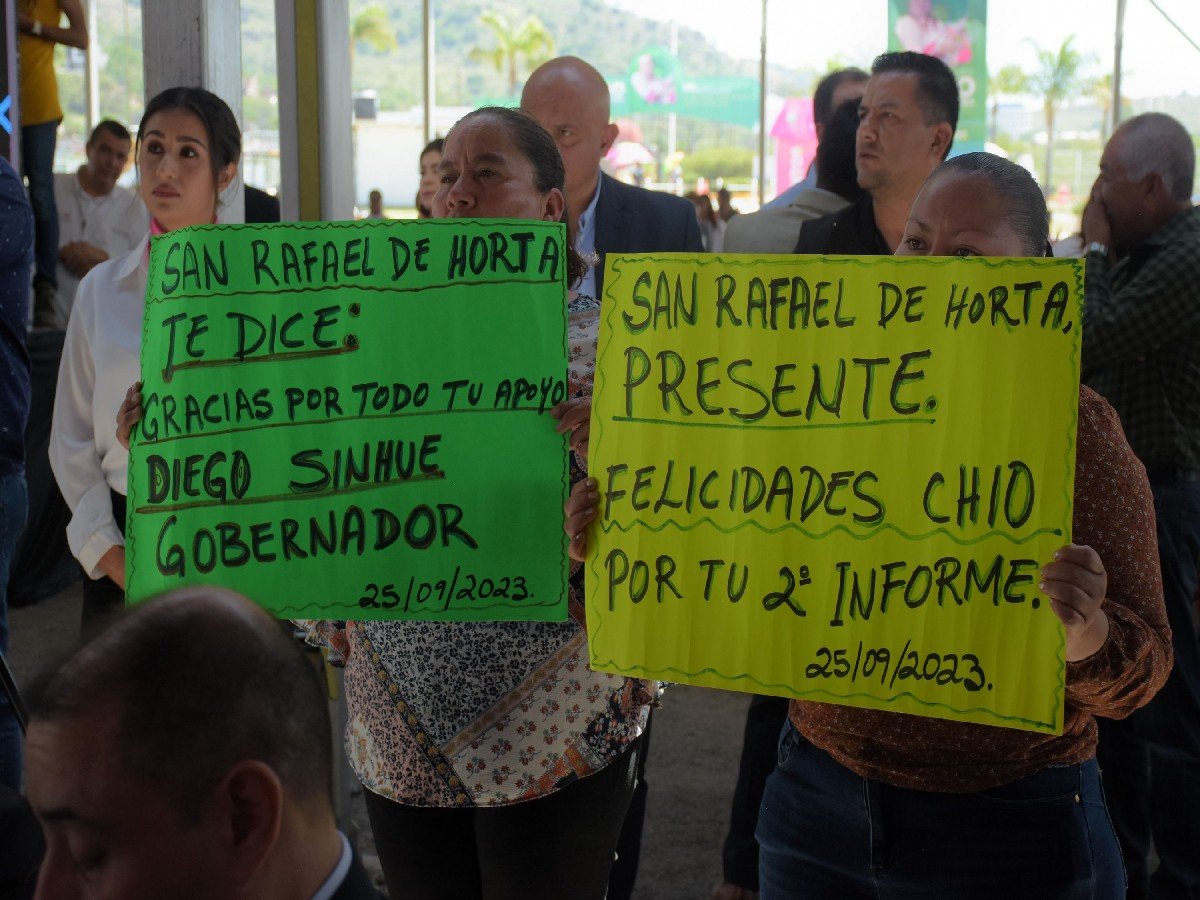 SAN RAFAEL DE HORTA
TE DICE:
GRACIAS POR TODO TU APOYO
DIEGO SINHUE
GOBERNADOR
25/09/2023.
SAN RAFAEL DE HORTA,
PRESENTE.
FELICIDADES CHIO
POR TU 2ª INFORME.
25/09/2023.